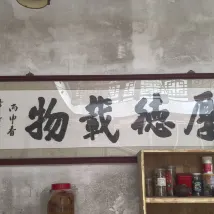 厚德載物
丙申春